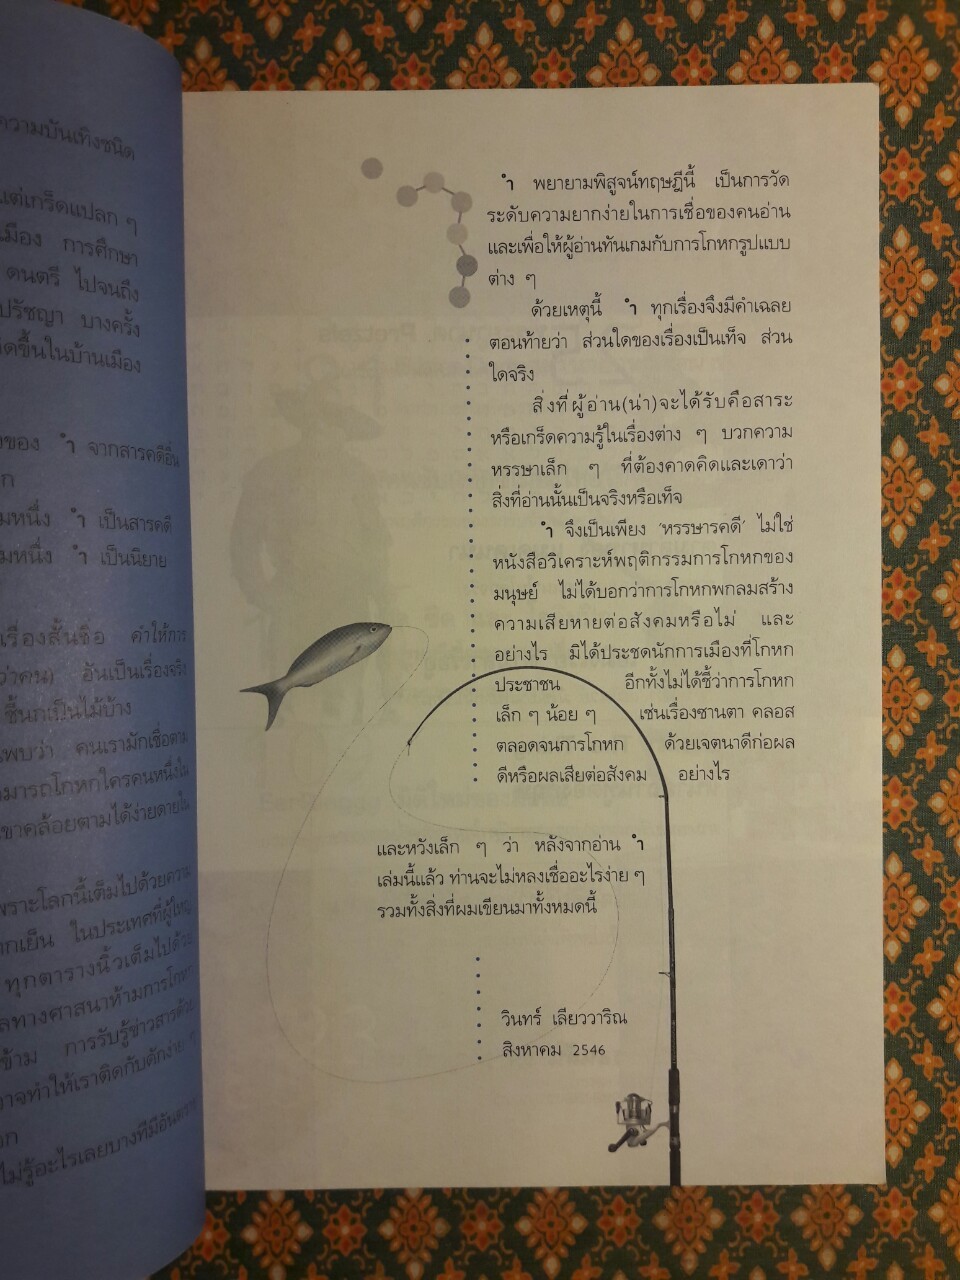 ความบันเทิงชนิด
แต่เกร็ดแปลก ๆ
เมือง การศึกษา
ดนตรี ไปจนถึง
ปรัชญา บางครั้ง
ขึ้นในบ้านเมือง
ของ ำ จากสารคดีอื่น
หนึ่ง ำ เป็นสารคดี
หนึ่ง ำ เป็นนิยาย
เรื่องสั้นชื่อ คำให้การ
อันเป็นเรื่องจริง
ชี้นกเป็นไม้บ้าง
พบว่า คนเรามักเชื่อตาม
สามารถโกหกใครคนหนึ่งใน
เขาคล้อยตามได้ง่ายดายใน
เพราะโลกนี้เต็มไปด้วยความ
ในประเทศที่ผู้ใหญ่
ทุกตารางนิ้วเต็มไปด้วย
ทางศาสนาห้ามการโกหก
ข้าม การรับรู้ข่าวสารด้วย
อาจทำให้เราติดกับดักง่าย ๆ
ไม่รู้อะไรเลยบางทีมีอันตราย
ำ พยายามพิสูจน์ทฤษฎีนี้ เป็นการวัด
ระดับความยากง่ายในการเชื่อของคนอ่าน
และเพื่อให้ผู้อ่านทันเกมกับการโกหกรูปแบบ
ต่าง ๆ
ด้วยเหตุนี้ ำ ทุกเรื่องจึงมีคำเฉลย
ตอนท้ายว่า ส่วนใดของเรื่องเป็นเท็จ ส่วน
ใดจริง
สิ่งที่ผู้อ่าน(น่า)จะได้รับคือสาระ
หรือเกร็ดความรู้ในเรื่องต่าง ๆ บวกความ
หรรษาเล็ก ๆ ที่ต้องคาดคิดและเดาว่า
สิ่งที่อ่านนั้นเป็นจริงหรือเท็จ
ำ จึงเป็นเพียง 'หรรษารคดี' ไม่ใช่
หนังสือวิเคราะห์พฤติกรรมการโกหกของ
มนุษย์ ไม่ได้บอกว่าการโกหกพกลมสร้าง
ความเสียหายต่อสังคมหรือไม่ และ
อย่างไร มิได้ประชดนักการเมืองที่โกหก
ประชาชน อีกทั้งไม่ได้ชี้ว่าการโกหก
เล็ก ๆ น้อย ๆ เช่นเรื่องซานตา คลอส
ตลอดจนการโกหก ด้วยเจตนาดีก่อผล
ดีหรือผลเสียต่อสังคม อย่างไร
และหวังเล็ก ๆ ว่า หลังจากอ่าน ำ
เล่มนี้แล้ว ท่านจะไม่หลงเชื่ออะไรง่าย ๆ
รวมทั้งสิ่งที่ผมเขียนมาทั้งหมดนี้
วินทร์ เลียววาริณ
สิงหาคม 2546